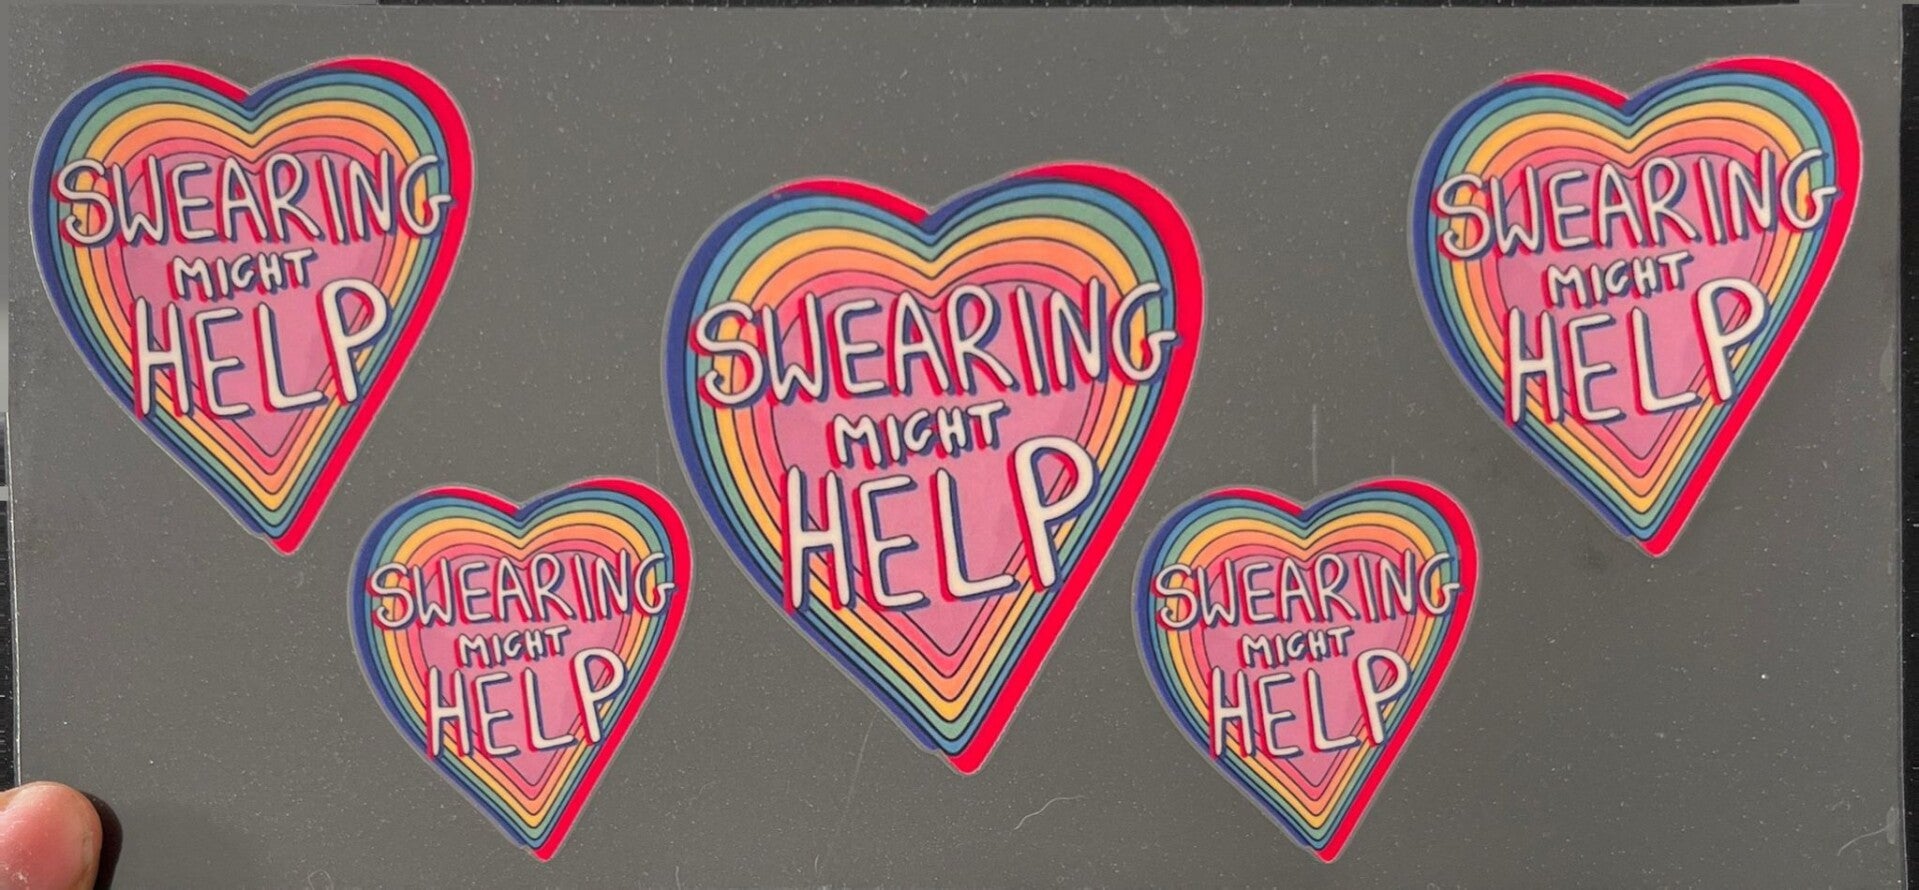 SWEARING
MIGHT
HELP
SWEARING
MIGHT
HELP
SWEARING
MIGHT
HELP
SWEARING
MIGHT
HELP
SWEARING
MIGHT
HELP